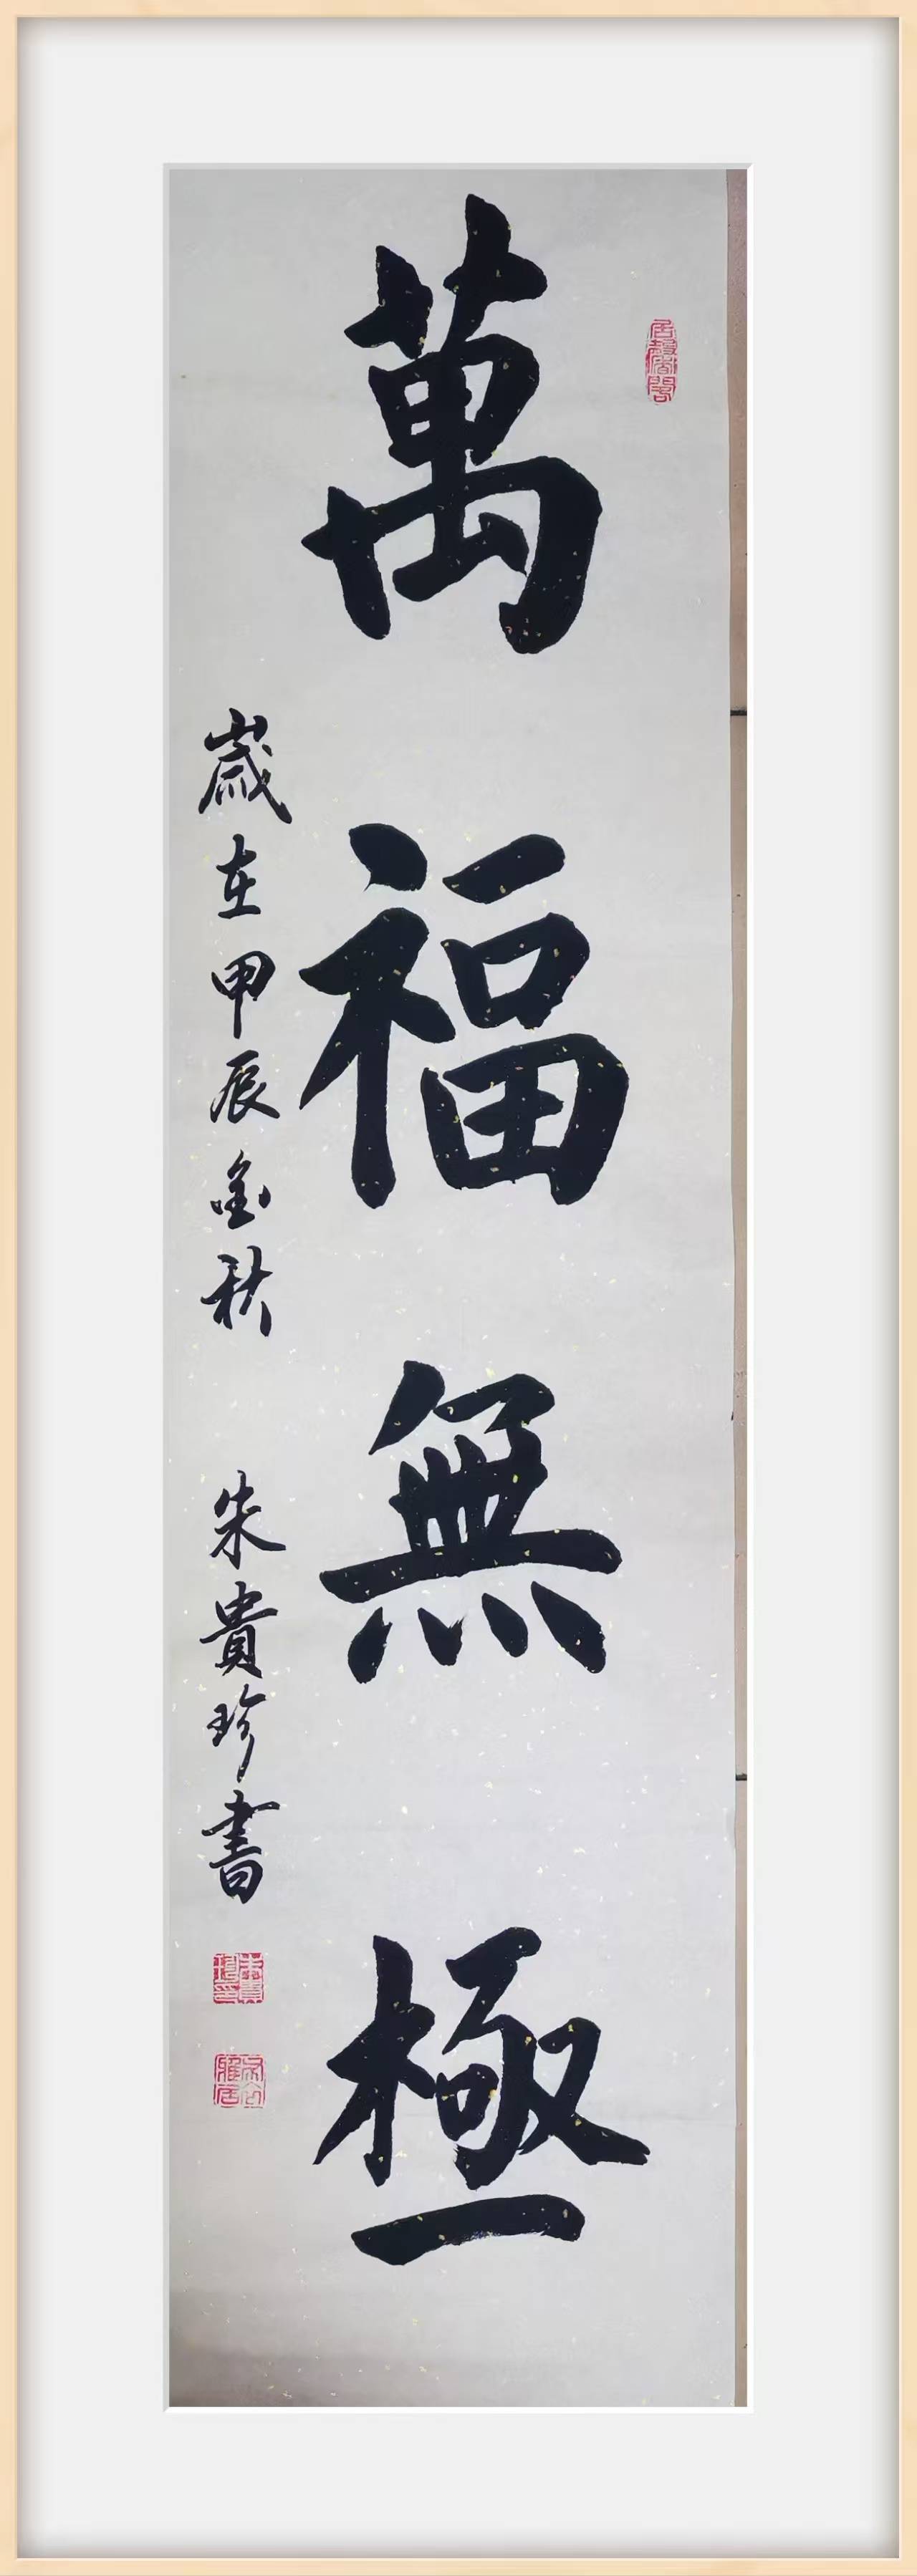 萬福無極
歲在甲辰金秋 朱貴珍書